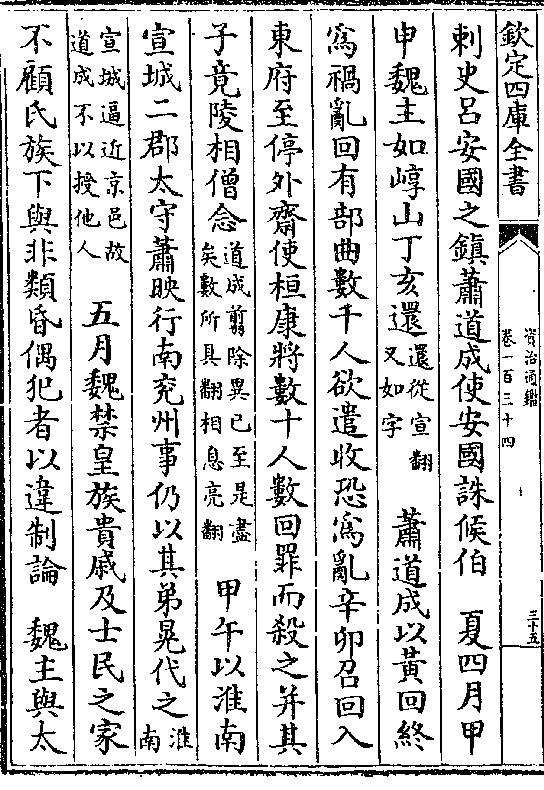 欽定四庫全書
資治通鑑
卷一百三十四
三十五
刺史呂安國之鎮蕭道成使安國誅候伯　夏四月甲
申魏主如崞山丁亥還還從宣翻又如字　蕭道成以黃回終
為禍亂回有部曲數千人欲遣收恐為亂辛卯召回入
東府至停外齋使桓康將數十人數回罪而殺之并其
子竟陵相僧念道成翦除異已至是盡矣數所具翻相息亮翻　甲午以淮南
宣城二郡太守蕭映行南兖州事仍以其弟晃代之淮南
宣城逼近京邑故道成不以授他人　五月魏禁皇族貴戚及士民之家
不顧氏族下與非類昏偶犯者以違制論　魏主與太